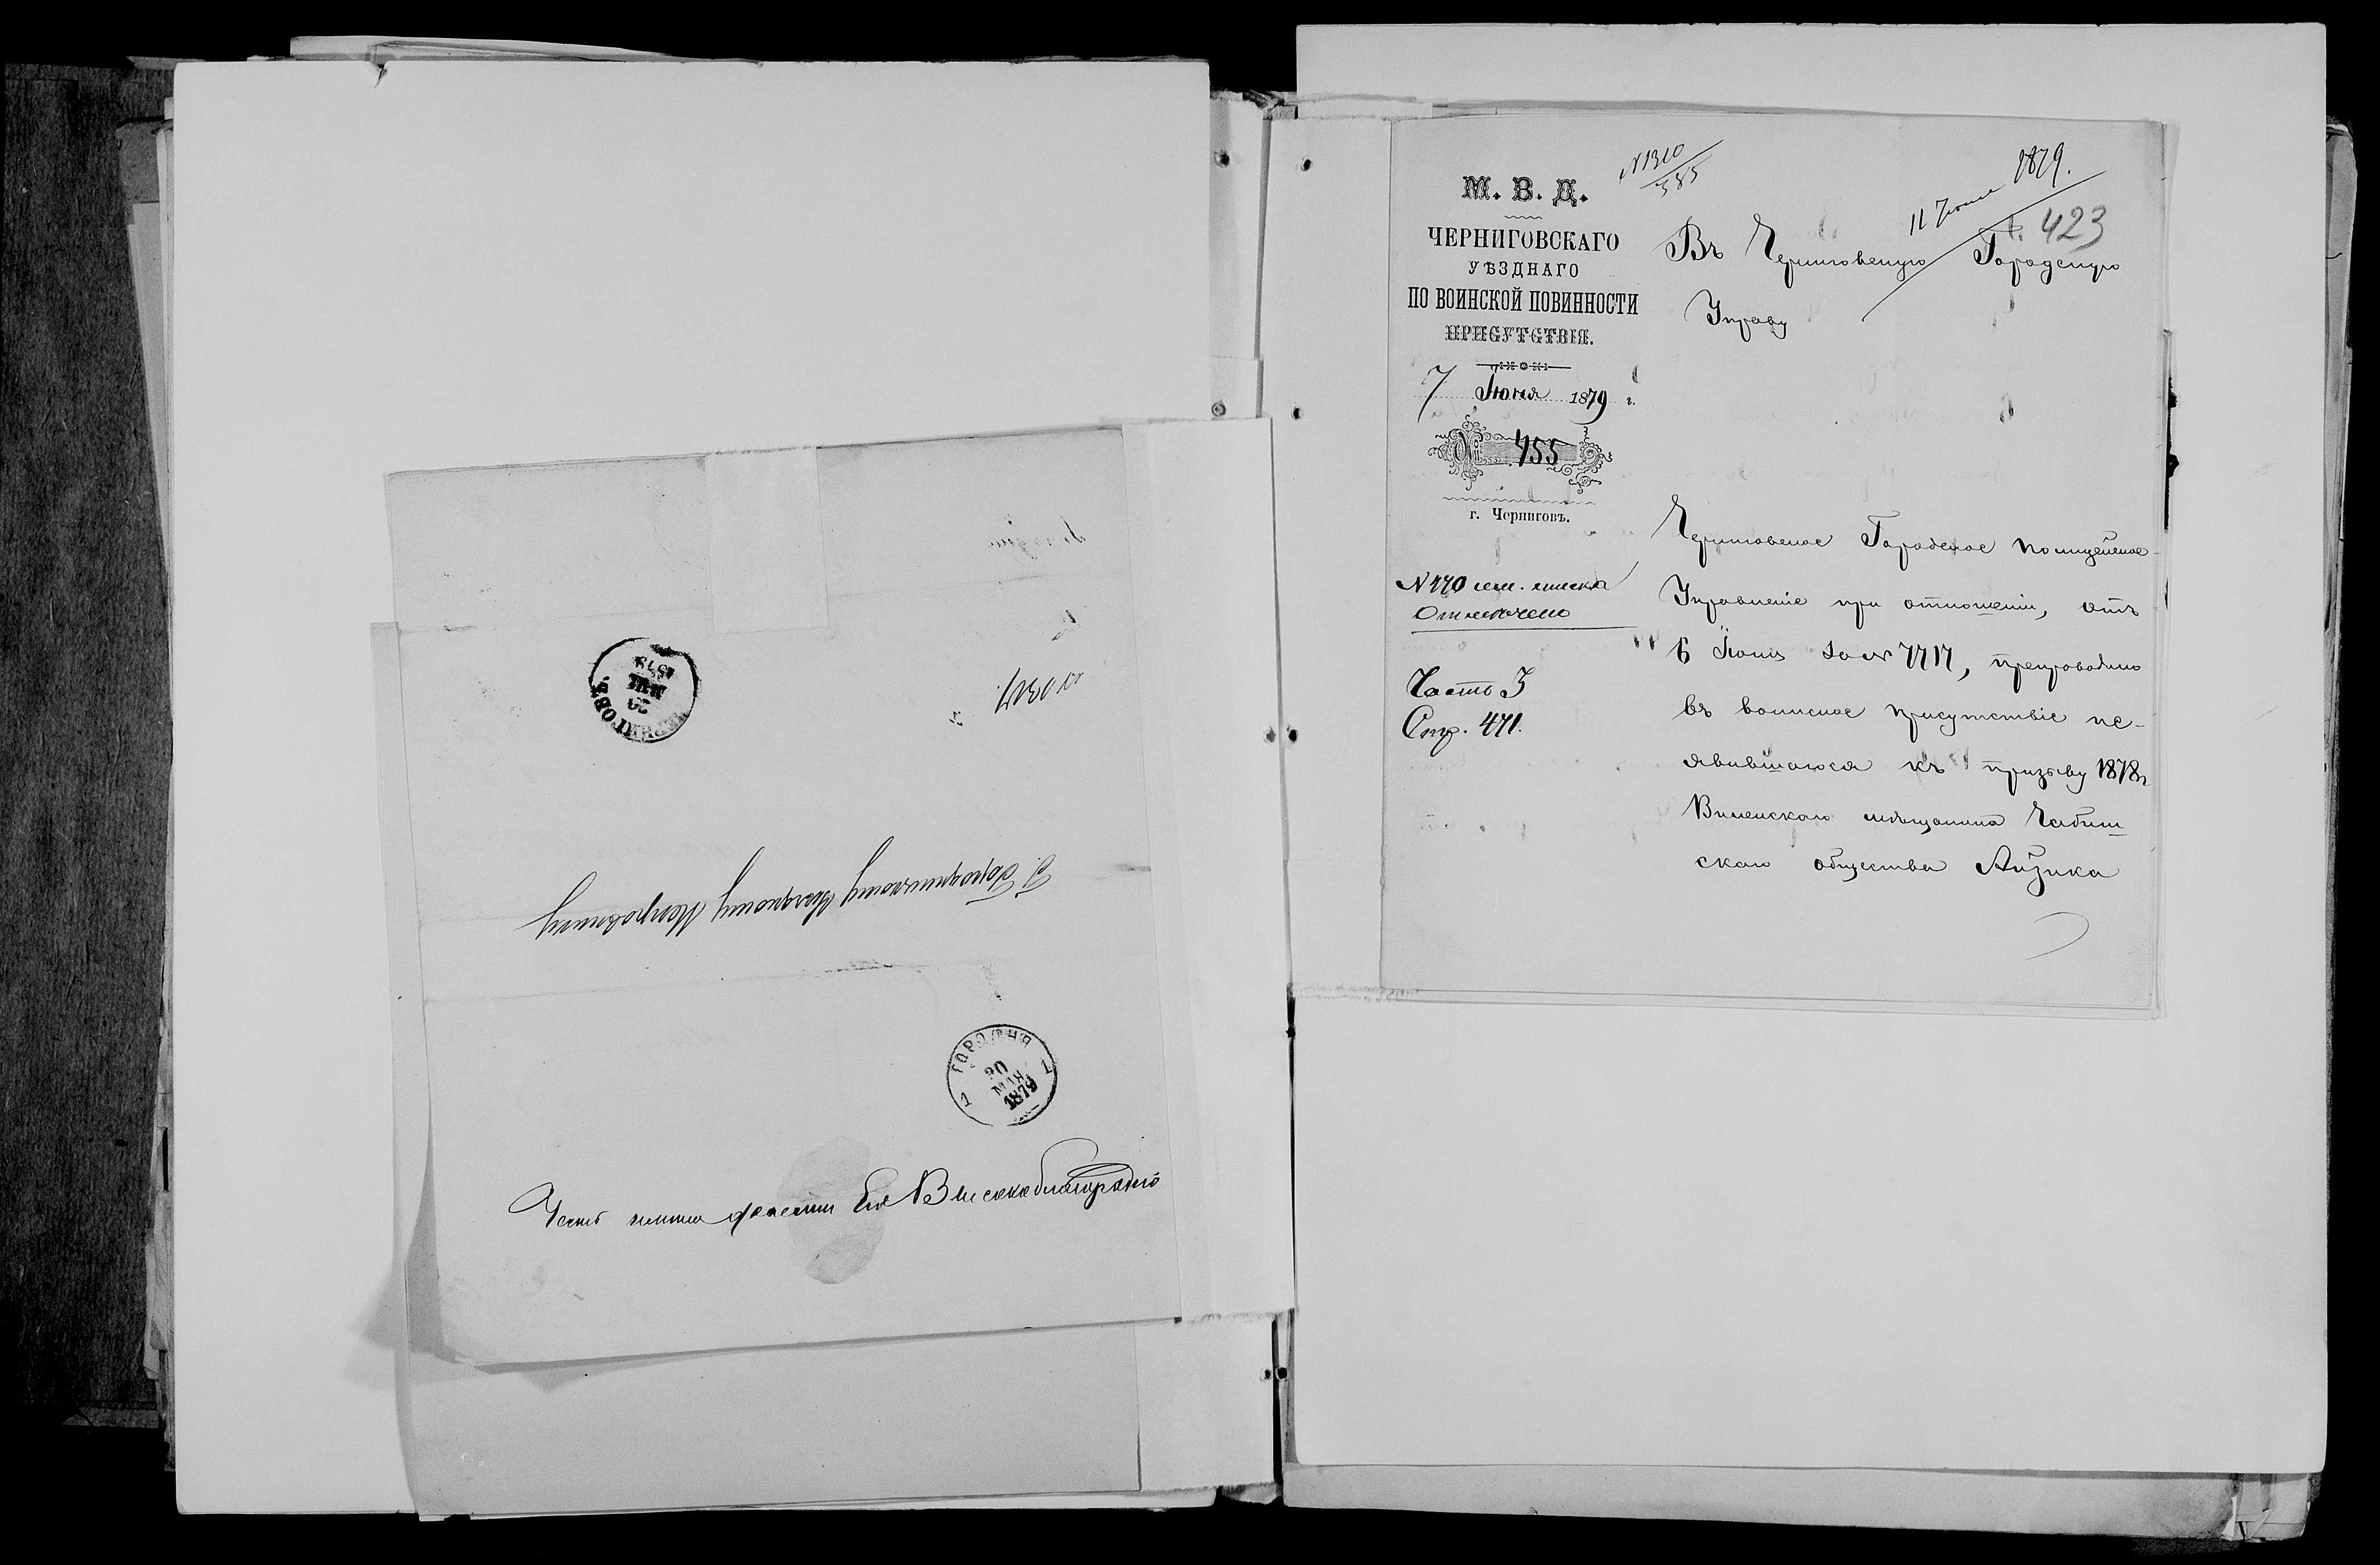 № 3017.
ЧЕРНИГОВЪ
1879
Г. Городничскому Уѣздному Исправнику
ГОРОДНЯ
30
МАЯ
1879
1
1
Честь имѣю донести Его Высокоблагородію
М. В. Д.
ЧЕРНИГОВСКАГО
УѢЗДНАГО
ПО ВОИНСКОЙ ПОВИННОСТИ
ПРИСУТСТВІЯ.
7 Іюня 1879 г.
№ 455
г. Черниговъ.
№ 1310
385
11 Іюня 1879.
423
Въ Черниговскую Городскую
Управу
№ 470 сем. списка
Отмѣчено
Часть 3
Стр. 471.
Черниговское Городское полицейское
Управленіе при отношеніи, отъ
6 Іюня за № 7717, препроводило
въ воинское присутствіе не-
явившагося къ призыву 1878 г
Виленскаго мѣщанина
скаго общества Айзика